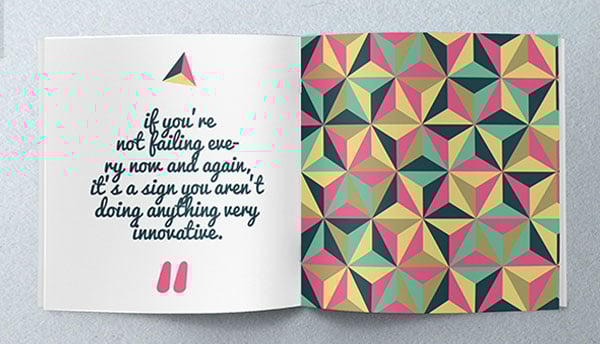 if you're
not failing eve-
ry now and again,
it's a sign you aren't
doing anything very
innovative.
"